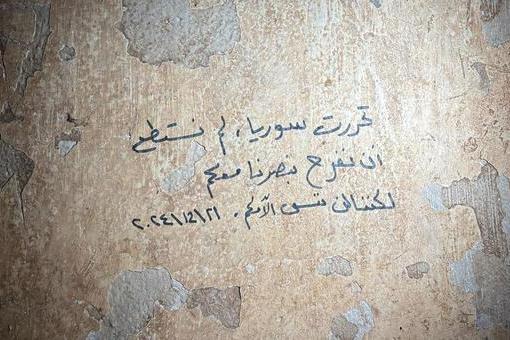 تحررت سوريا، لم نستطع
ان نفرح بنصرنا معكم
لكننا لن ننسى آلامكم. ٢٠٢٤/١٢/٢١